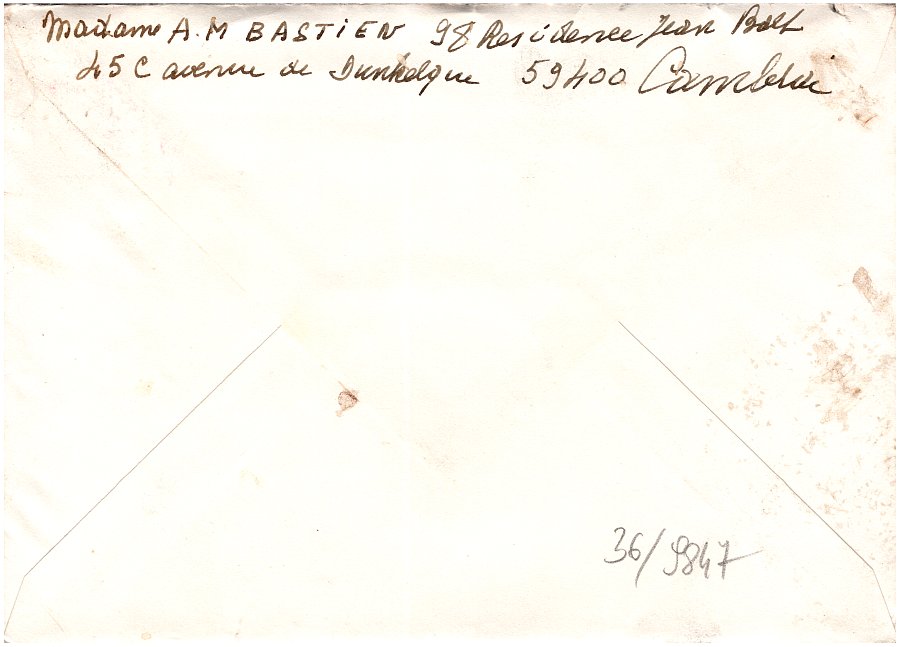 Madame A.M BASTIEN 98 Residence Jean Bart
45 C avenue de Dunkerque 59400 Cambrai
36/9847